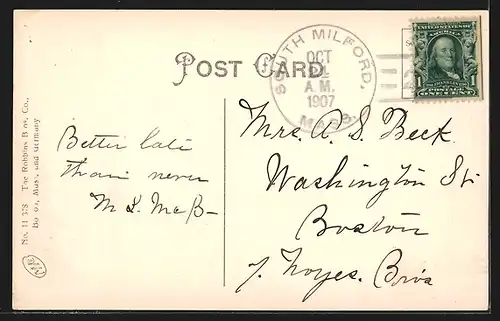 POST CARD
SOUTH MILFORD,
OCT
A.M.
1907
MASS.
UNITED STATES OF AMERICA
FRANKLIN
POSTAGE
ONE CENT
Better late
than never
M L McB-
Mrs. A. S. Beck.
Washington St.
Boston
Noyes. Bros
No. 11 378 The Robbins Bros. Co.,
Boston, Mass. and Germany